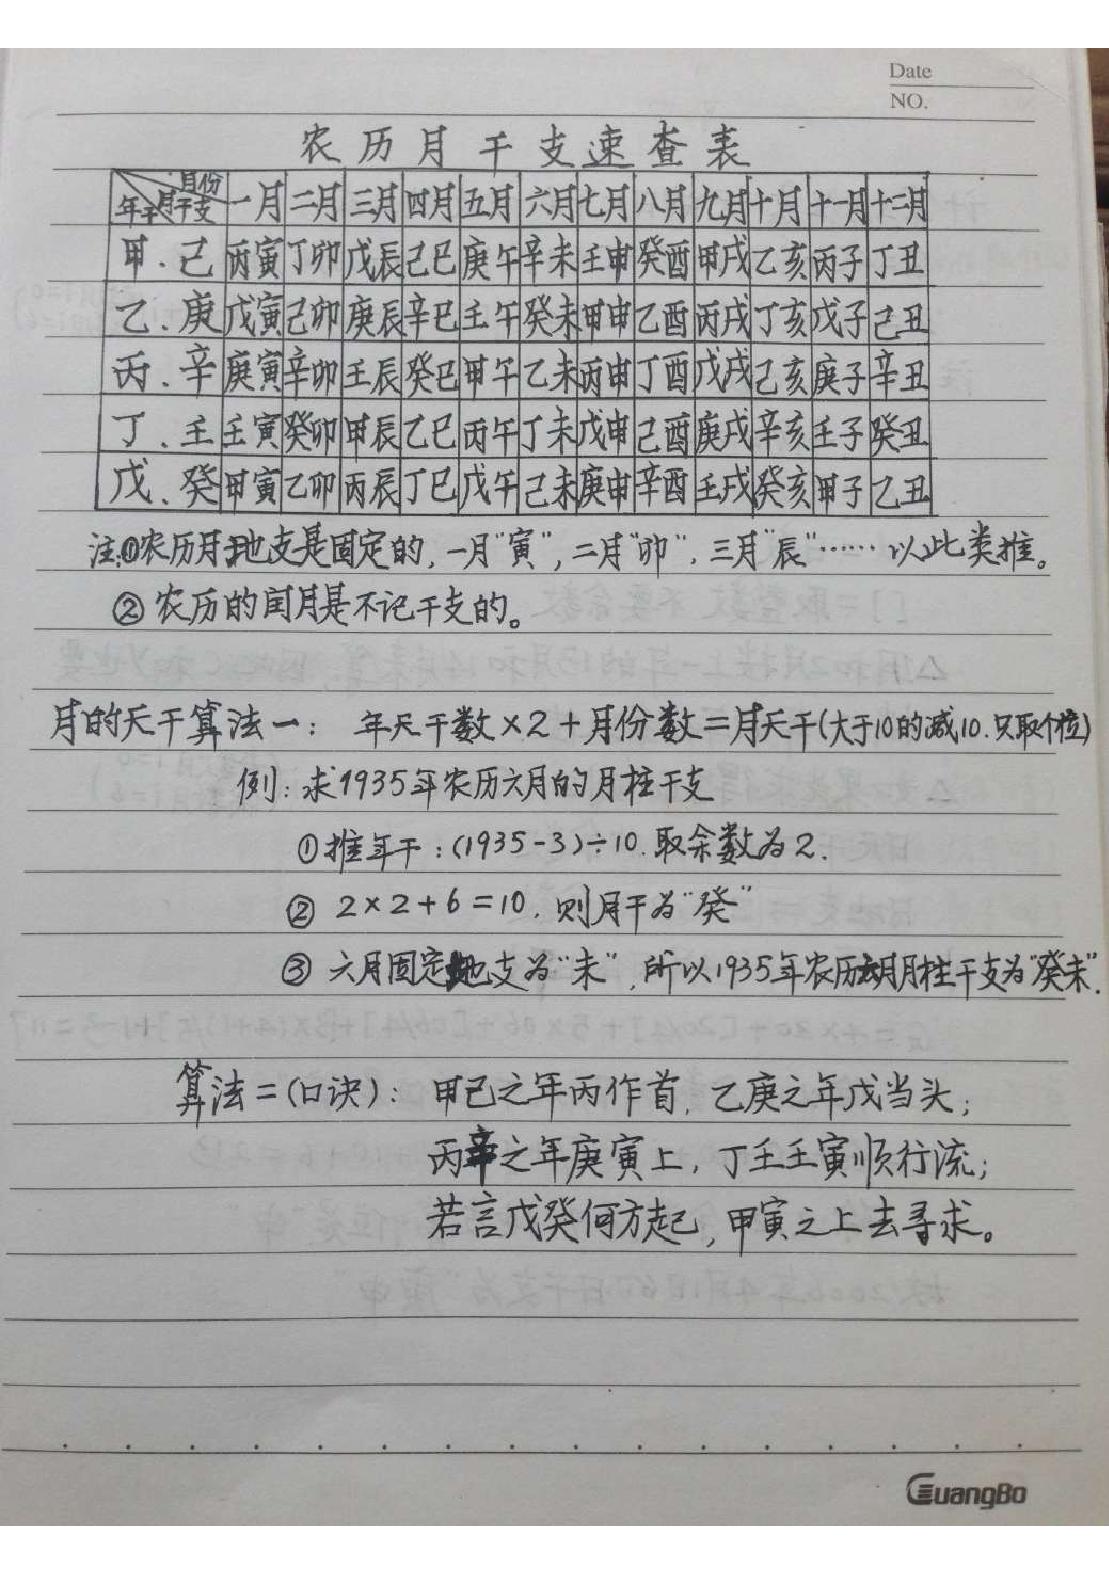 Date
NO.
农历月干支速查表
年干 月干支 月份 一月 二月 三月 四月 五月 六月 七月 八月 九月 十月 十一月 十二月
甲、己 丙寅 丁卯 戊辰 己巳 庚午 辛未 壬申 癸酉 甲戌 乙亥 丙子 丁丑
乙、庚 戊寅 己卯 庚辰 辛巳 壬午 癸未 甲申 乙酉 丙戌 丁亥 戊子 己丑
丙、辛 庚寅 辛卯 壬辰 癸巳 甲午 乙未 丙申 丁酉 戊戌 己亥 庚子 辛丑
丁、壬 壬寅 癸卯 甲辰 乙巳 丙午 丁未 戊申 己酉 庚戌 辛亥 壬子 癸丑
戊、癸 甲寅 乙卯 丙辰 丁巳 戊午 己未 庚申 辛酉 壬戌 癸亥 甲子 乙丑
注:①农历月地支是固定的,一月“寅”,二月“卯”,三月“辰”……以此类推。
②农历的闰月是不记干支的。
月的天干算法一: 年天干数×2+月份数=月天干(大于10的减10.只取个位)
例:求1935年农历六月的月柱干支
①推年干:(1935-3)÷10.取余数为2.
② 2×2+6=10,则月干为“癸”
③ 六月固定地支为“未”,所以1935年农历六月月柱干支为“癸未”.
算法二(口诀): 甲己之年丙作首,乙庚之年戊当头;
丙辛之年庚寅上,丁壬壬寅顺行流;
若言戊癸何方起,甲寅之上去寻求。
GuangBo